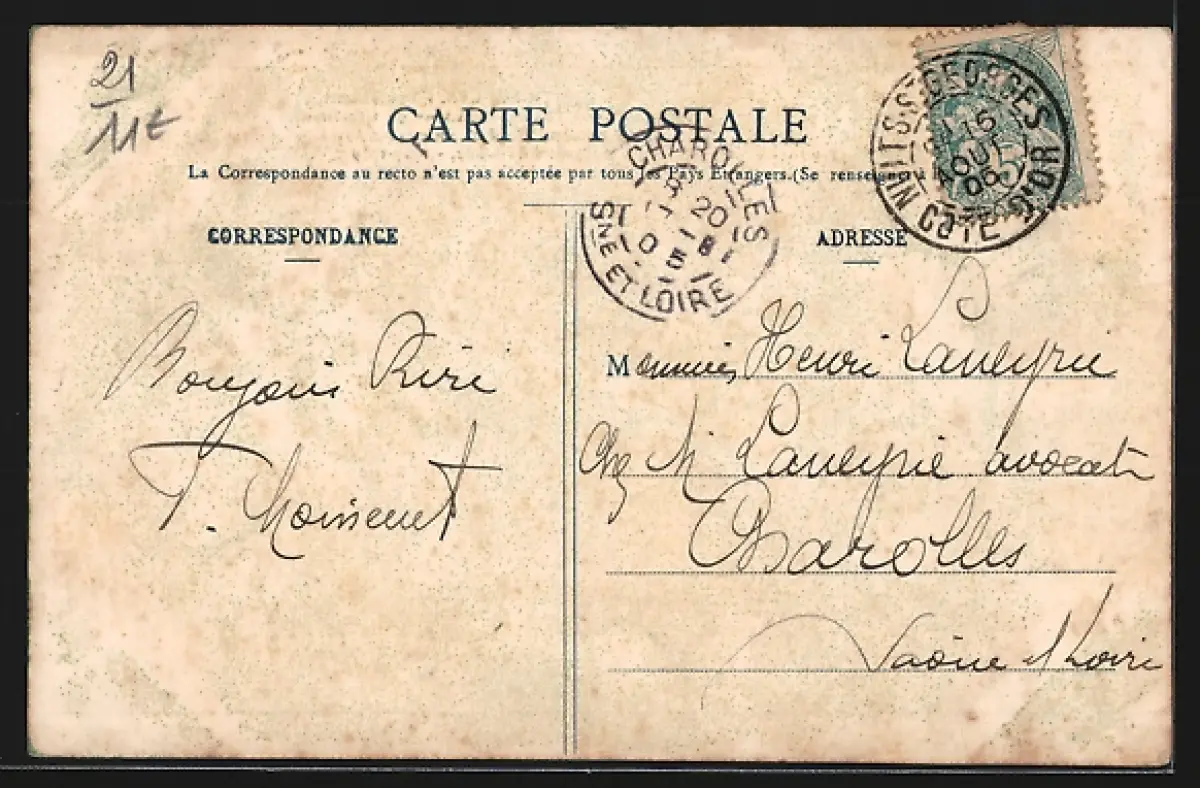 21
11t
CARTE POSTALE
La Correspondance au recto n'est pas acceptée par tous les Pays Etrangers. (Se renseigner à l
CORRESPONDANCE
ADRESSE
NUITS-S-GEORGES
16
AOUT
05
COTE-D'OR
CHAROLLES
20
SNE ET LOIRE
Bonjour Riri
T. Moissenet
Monsieur Henri Laneyrie
Chez M Laneyrie avocat
Charolles
Saône et Loire